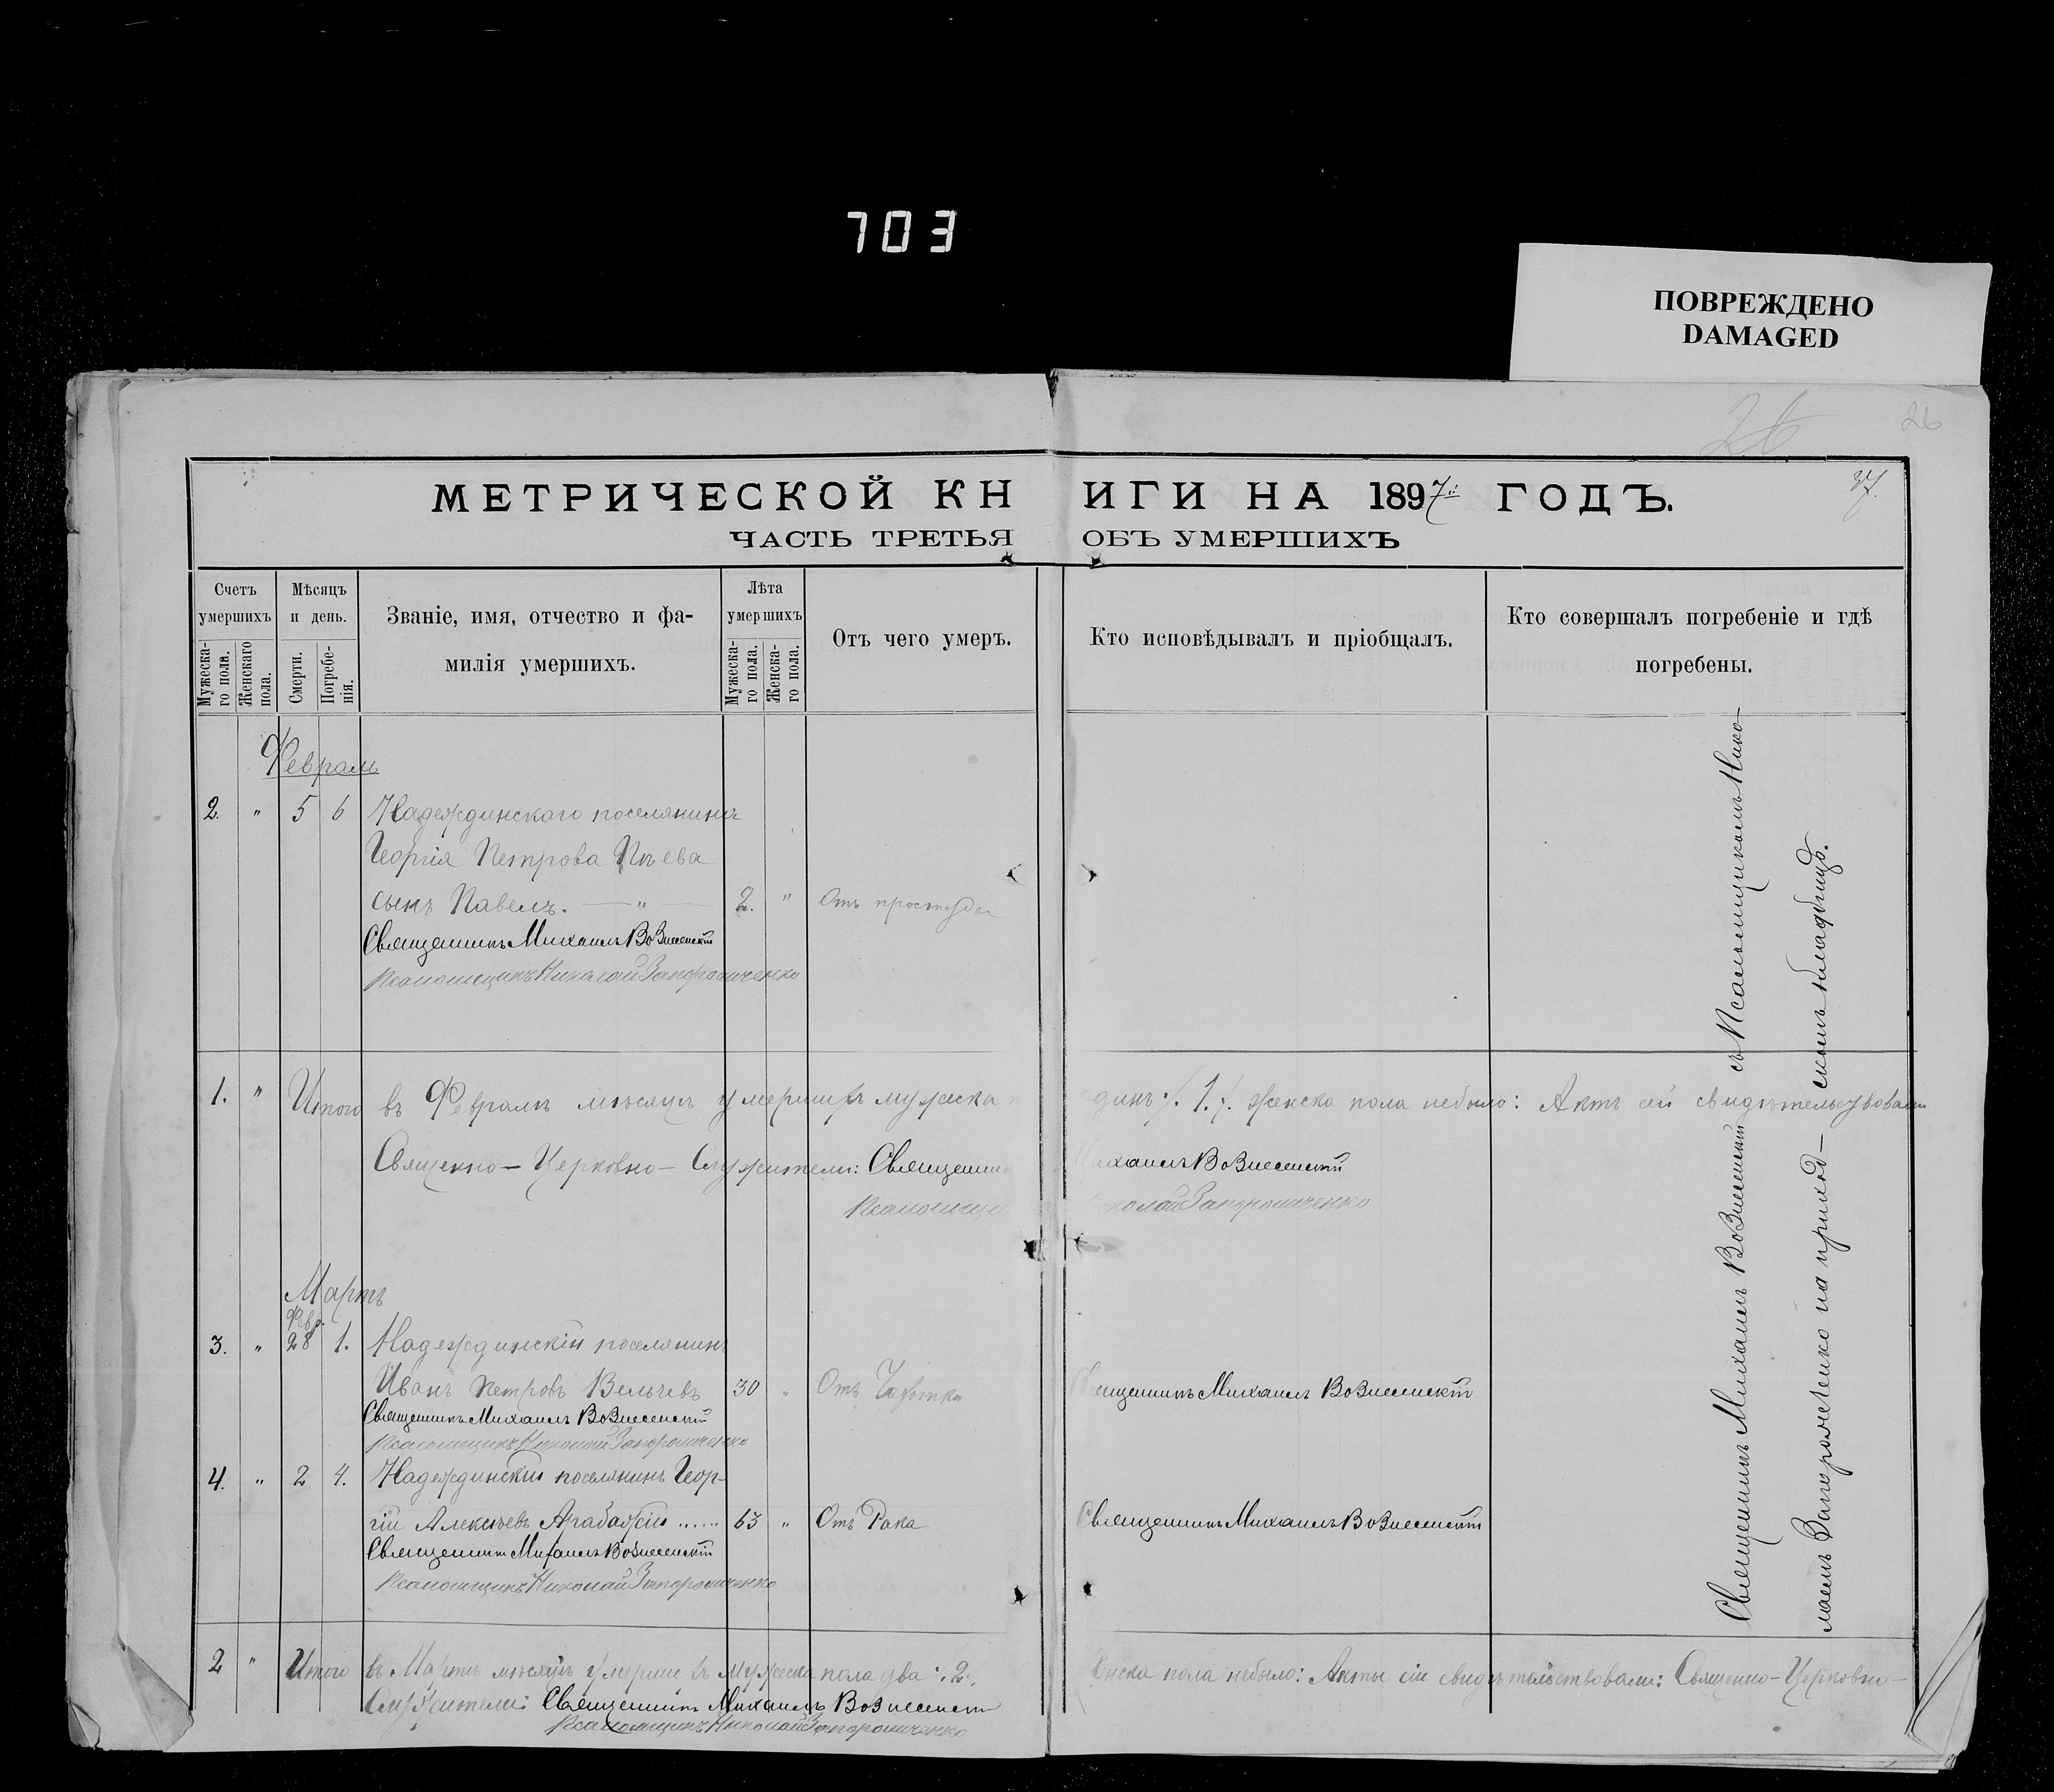 703
ПОВРЕЖДЕНО
DAMAGED
26
26
37.
МЕТРИЧЕСКОЙ КНИГИ НА 1897й ГОДЪ.
ЧАСТЬ ТРЕТЬЯ ОБЪ УМЕРШИХЪ
Счетъ умершихъ
Мужеска-го пола.
Женскаго пола.
Мѣсяцъ и день.
Смерти.
Погребе-нія.
Званіе, имя, отчество и фа-
милія умершихъ.
Лѣта умершихъ
Мужеска-го пола.
Женска-го пола.
Отъ чего умеръ.
Кто исповѣдывалъ и пріобщалъ.
Кто совершалъ погребеніе и гдѣ
погребены.
Февраль
2. " 5 6 Надеждинскаго поселянина
Георгія Петрова
сынъ Павелъ. — " — 2. " Отъ простуды
Священникъ Михаилъ Вознесенскій
Псаломщикъ Николай Запорожченко
1. " Итого въ Февралѣ мѣсяцѣ умершихъ мужеска одинъ ./. 1. ./. женска пола небыло: Актъ сей свидѣтельствовали
Священно – Церковно – Служители: Священникъ Михаилъ Вознесенскій
Псаломщикъ Николай Запорожченко
Мартъ
Февр.
3. " 28 1. Надеждинскій поселянинъ
Иванъ Петровъ Вельчевъ 30 " Отъ Чахотки Священникъ Михаилъ Вознесенскій
Священникъ Михаилъ Вознесенскій
Псаломщикъ Николай Запорожченко
4. " 2 4. Надеждинскій поселянинъ Геор-
гій Алексѣевъ Арабаджи ...... 63 " Отъ Рака Священникъ Михаилъ Вознесенскій
Священникъ Михаилъ Вознесенскій
Псаломщикъ Николай Запорожченко
2 " Итого въ Мартѣ мѣсяцѣ умершихъ мужеска пола два ./. 2 ./. женска пола небыло: Акты сіи свидѣтельствовали: Священно – Церковно –
Служители: Священникъ Михаилъ Вознесенскій
Псаломщикъ Николай Запорожченко
Священникъ Михаилъ Вознесенскій съ Псаломщикомъ Нико-
лаемъ Запорожченко на приход-скомъ кладбищѣ.